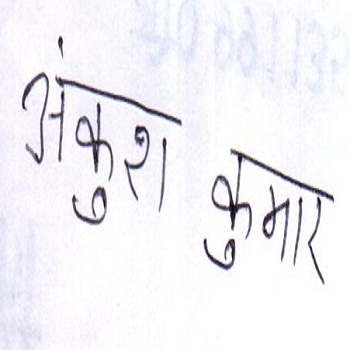 अंकुश कुमार